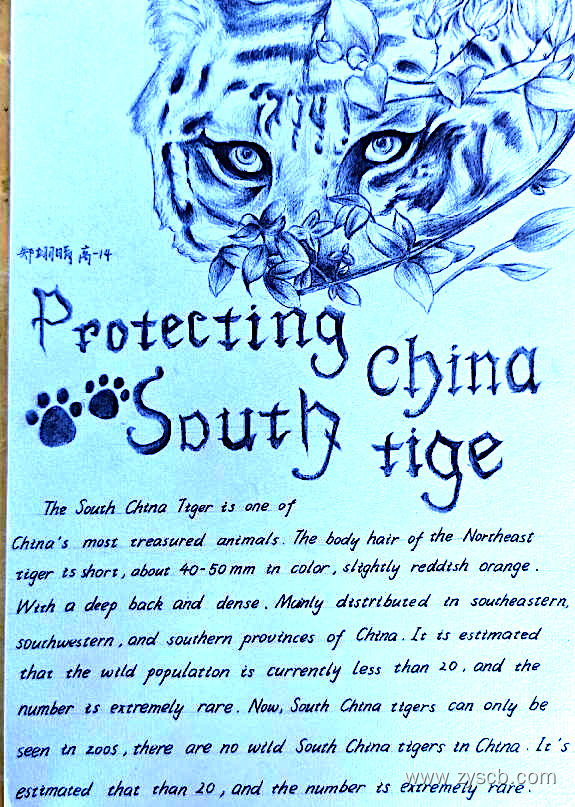 高一14
Protecting
South
china
tige
The South China Tiger is one of
China's most treasured animals. The body hair of the Northeast
tiger is short, about 40-50mm in color, slightly reddish orange.
With a deep back and dense. Mainly distributed in southeastern,
southwestern, and southern provinces of China. It is estimated
that the wild population is currently less than 20, and the
number is extremely rare. Now, South China tigers can only be
seen in zoos, there are no wild South China tigers in China. It's
estimated that than 20, and the number is extremely rare.
www.zyscb.com